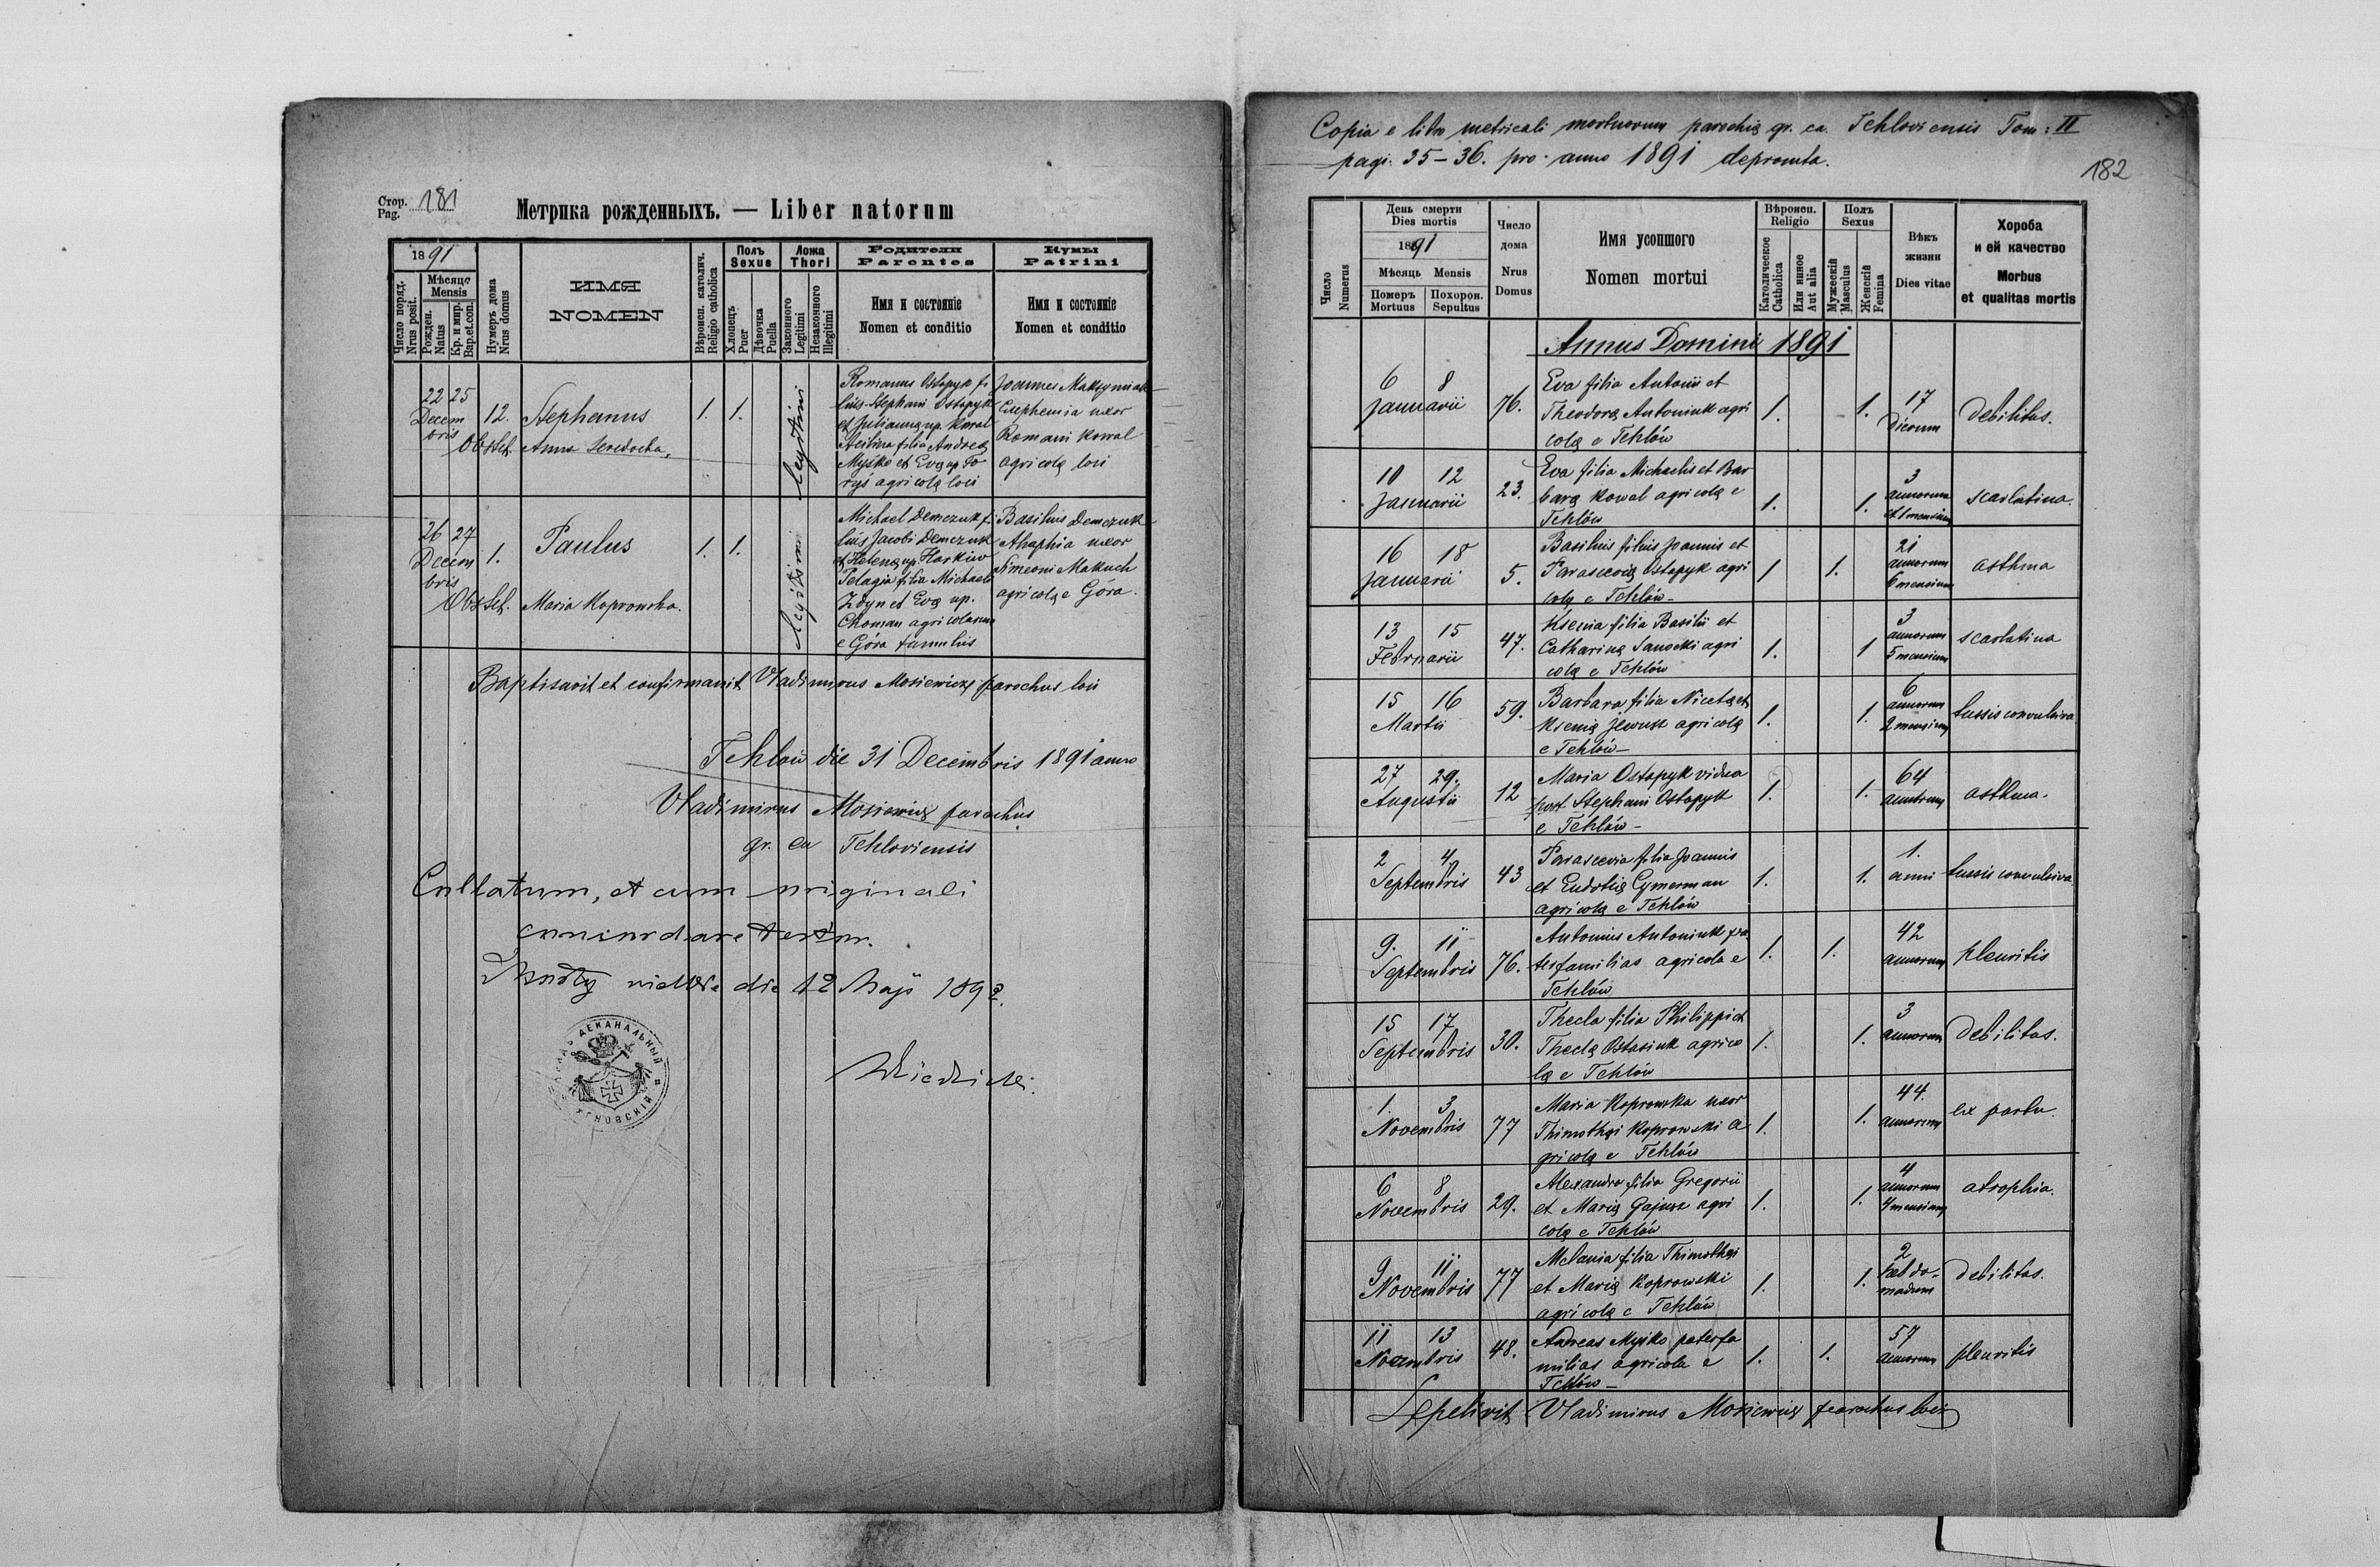 Стор. Pag. 181
Метрика рожденныхъ. — Liber natorum
1891
Число поряд. Nrus posit.
Мѣсяцѣ Mensis
Рожден. Natus
Кр. и мир. Bap.et.con.
Нумеръ дома Nrus domus
ИМЯ
NOMEN
Вѣроисп. католич. Religio catholica
Полъ Sexus
Хлопецъ Puer
Дѣвочка Puella
Ложа Thori
Законного Legitimi
Незаконного Illegitimi
Родители Parentes
Имя и состояніе
Nomen et conditio
Кумы Patrini
Имя и состояніе
Nomen et conditio
22 25 Decem bris 12. Stephanus 1. 1. legitimi
Obstet. Anna
Romanus Ostapyk fi
lius Stephani Ostapyk
et Julianna np. Kowal
filia Andreæ
Myśko et Eva np.
agricolæ loci
Joannes
Euphemia uxor
Romani Kowal
agricolæ loci
26 27 Decem bris 1. Paulus 1. 1. legitimi
Obstet. Maria Koprowska.
Michael Demczuk fi
lius Jacobi Demczuk
et Helenæ np. Harkiw
Pelagia filia Michaelis
Zdyn et Eva np.
Choman agricolarum
e Góra famulus
Basilius Demczuk
Ahaphia uxor
Simeoni Makuch
agricolæ e Góra.
Baptisavit et confirmavit Vladimirus Mosiewicz parochus loci
Tehlów die 31 Decembris 1891 anno
Vladimirus Mosiewicz parochus
gr. ca Tehloviensis
Collatum, et cum originali
concordare testor.
die 12 Maji 1892.
ДЕКАНАЛЬНЫЙ
Copia e libro metricali mortuorum parochiæ gr. ca. Tehloviensis Tom: II
pagi. 35–36. pro anno 1891 depromta.
182
Число Numerus
День смерти
Dies mortis
1891
Мѣсяць Mensis
Померъ Mortuus
Похорон. Sepultus
Число дома
Nrus Domus
Имя усопшого
Nomen mortui
Вѣроисп. Religio
Католическое Catholica
Или инное Aut alia
Полъ Sexus
Мужескій Masculus
Женскій Femina
Вѣкъ жизни
Dies vitae
Хороба и ей качество
Morbus et qualitas mortis
Annus Domini 1891
6 8 Januarii 76. Eva filia Antonii et
Theodoræ Antoniuk agri
colæ e Tehlów 1. 1. 17 dierum debilitas.
10 12 Januarii 23. Eva filia Michaelis et Bar
baræ Kowal agricolæ e
Tehlów 1. 1. 3 annorum et 1 mensium scarlatina.
16 18 Januarii 5. Basilius filius Joannis et
Parasceviæ Ostapyk agri
colæ e Tehlów – 1 1. 21 annorum 6 mensium asthma
13 15 Februarii 47. Ksenia filia Basilii et
Catharinæ Sanocki agri
colæ e Tehlów 1. 1 3 annorum 5 mensium scarlatina
15 16 Martii 59. Barbara filia Nicetæ et
Kseniæ agricolæ
e Tehlów – 1. 1. 6 annorum 2 mensium tussis convulsiva
27 29. Augustii 12 Maria Ostapyk vidua
post Stephani Ostapyk
e Tehlów – 1. 1. 64 annorum asthma.
2 4 Septembris 43 Parascevia filia Joannis
et Eudokiæ Cymerman
agricolæ e Tehlów 1. 1. 1. anni tussis convulsiva
9. 11 Septembris 76. Antonius Antoniuk pa
terfamilias agricola e
Tehlów 1. 1. 42 annorum pleuritis
15 17 Septembris 30. Thecla filia Philippi et
Theclæ Ostasiuk agrico
læ e Tehlów 1. 1. 3 annorum debilitas.
1. 3 Novembris 77 Maria Koprowska uxor
Thimothei Koprowski a
gricolæ e Tehlów 1. 1. 44. annorum ex partu.
6 8 Novembris 29. Alexandra filia Gregorii
et Mariæ Gajusz agri
colæ e Tehlów 1. 1. 4 annorum 4 mensium atrophia.
9 11 Novembris 77 Melania filia Thimothei
et Mariæ Koprowski
agricolæ e Tehlów 1. 1. 2 hebdo-
madum debilitas.
11 13 Novembris 48. Andreas Myśko paterfa
milias agricola e
Tehlów – 1. 1. 57 annorum pleuritis
Sepelivit Vladimirus Mosiewicz parochus loci